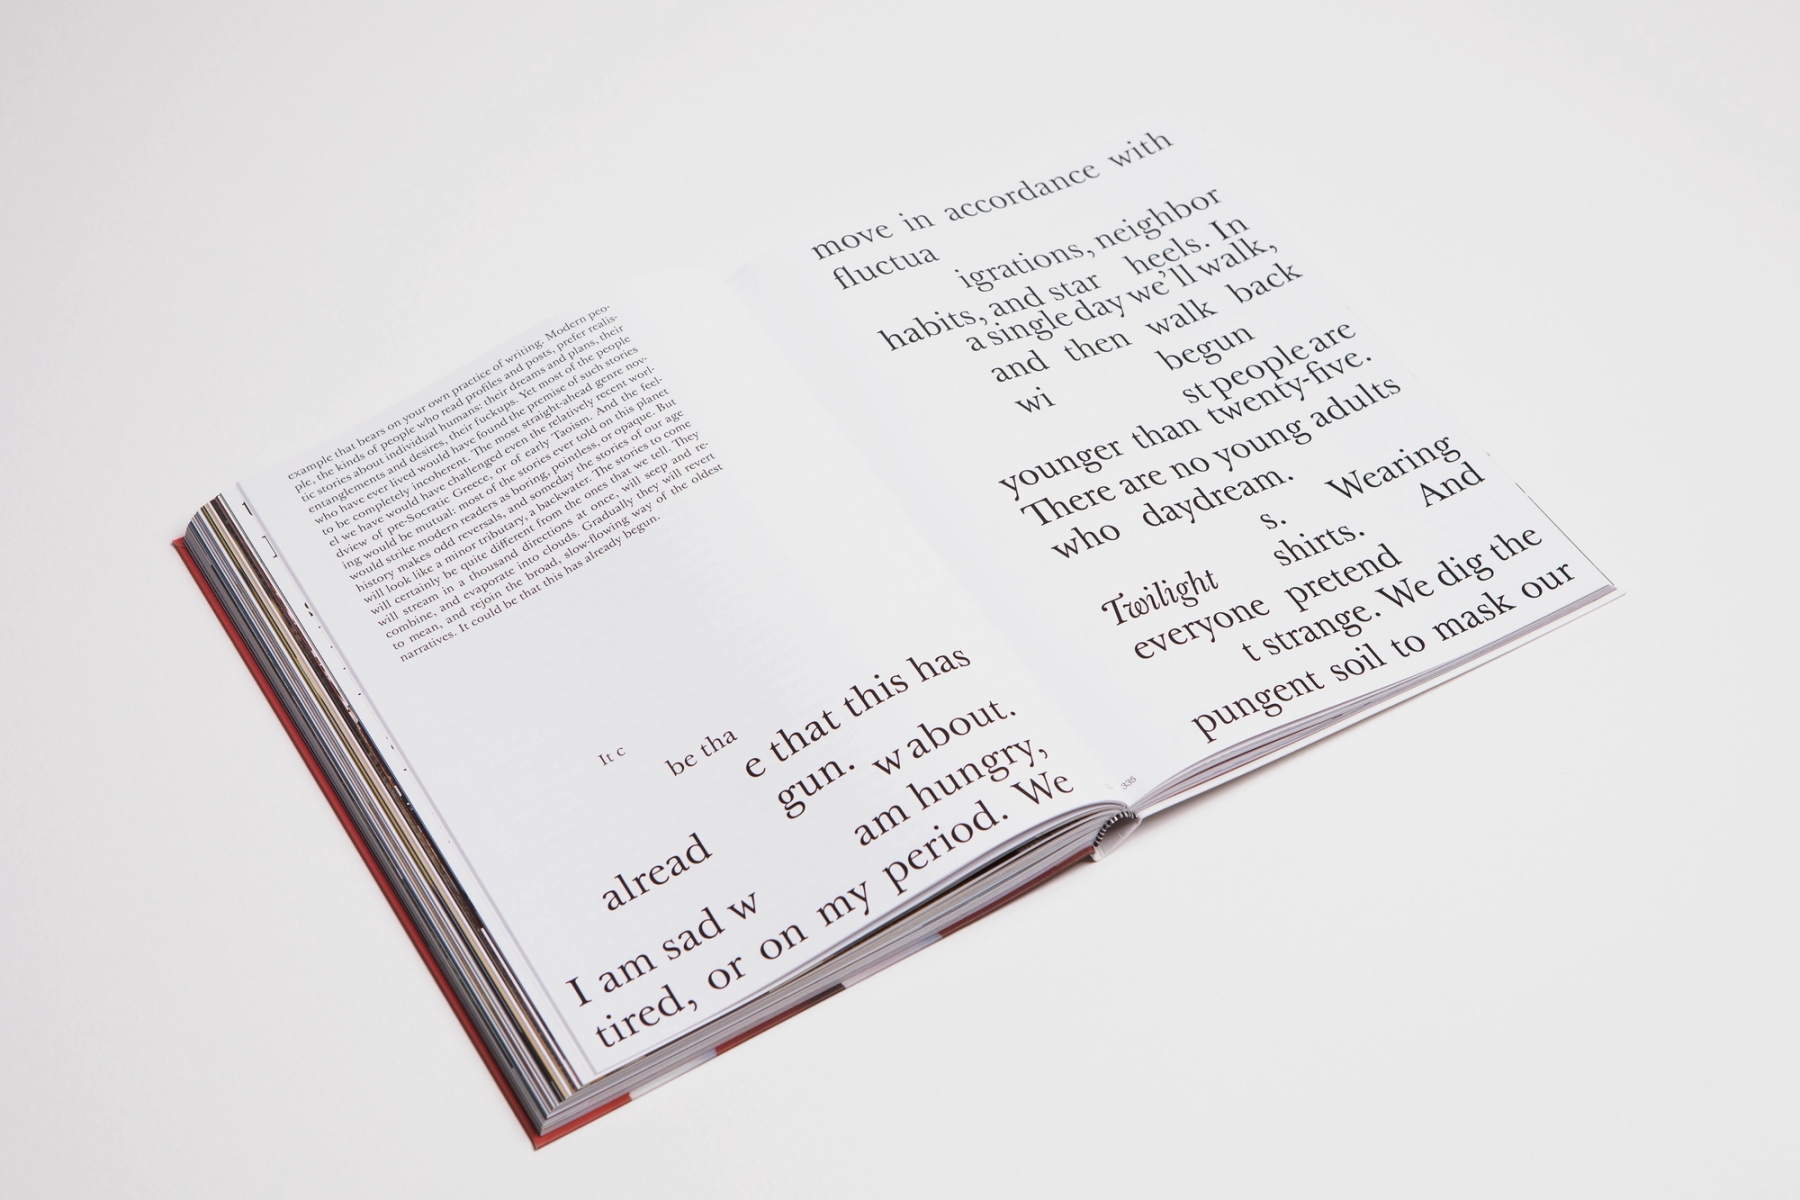 example that bears on your own practice of writing. Modern peo-
ple, the kinds of people who read profiles and posts, prefer realis-
tic stories about individual humans: their dreams and plans, their
entanglements and desires, their fuckups. Yet most of the people
who have ever lived would have found the premise of such stories
to be completely incoherent. The most straight-ahead genre nov-
el we have would have challenged even the relatively recent worl-
dview of pre-Socratic Greece, or of early Taoism. And the feel-
ing would be mutual: most of the stories ever told on this planet
would strike modern readers as boring, pointless, or opaque. But
history makes odd reversals, and someday the stories of our age
will look like a minor tributary, a backwater. The stories to come
will certainly be quite different from the ones that we tell. They
will stream in a thousand directions at once, will seep and re-
combine, and evaporate into clouds. Gradually they will revert
to mean, and rejoin the broad, slow-flowing way of the oldest
narratives. It could be that this has already begun.
It c
be tha
e that this has
alread
gun.
w about.
I am sad w
am hungry,
tired, or on my period. We
move in accordance with
fluctua
igrations, neighbor
habits, and star
heels. In
a single day we'll walk,
and then walk back
wi
begun
st people are
younger than twenty-five.
There are no young adults
who daydream.
Wearing
s.
And
Twilight
shirts.
everyone pretend
t strange. We dig the
pungent soil to mask our
335